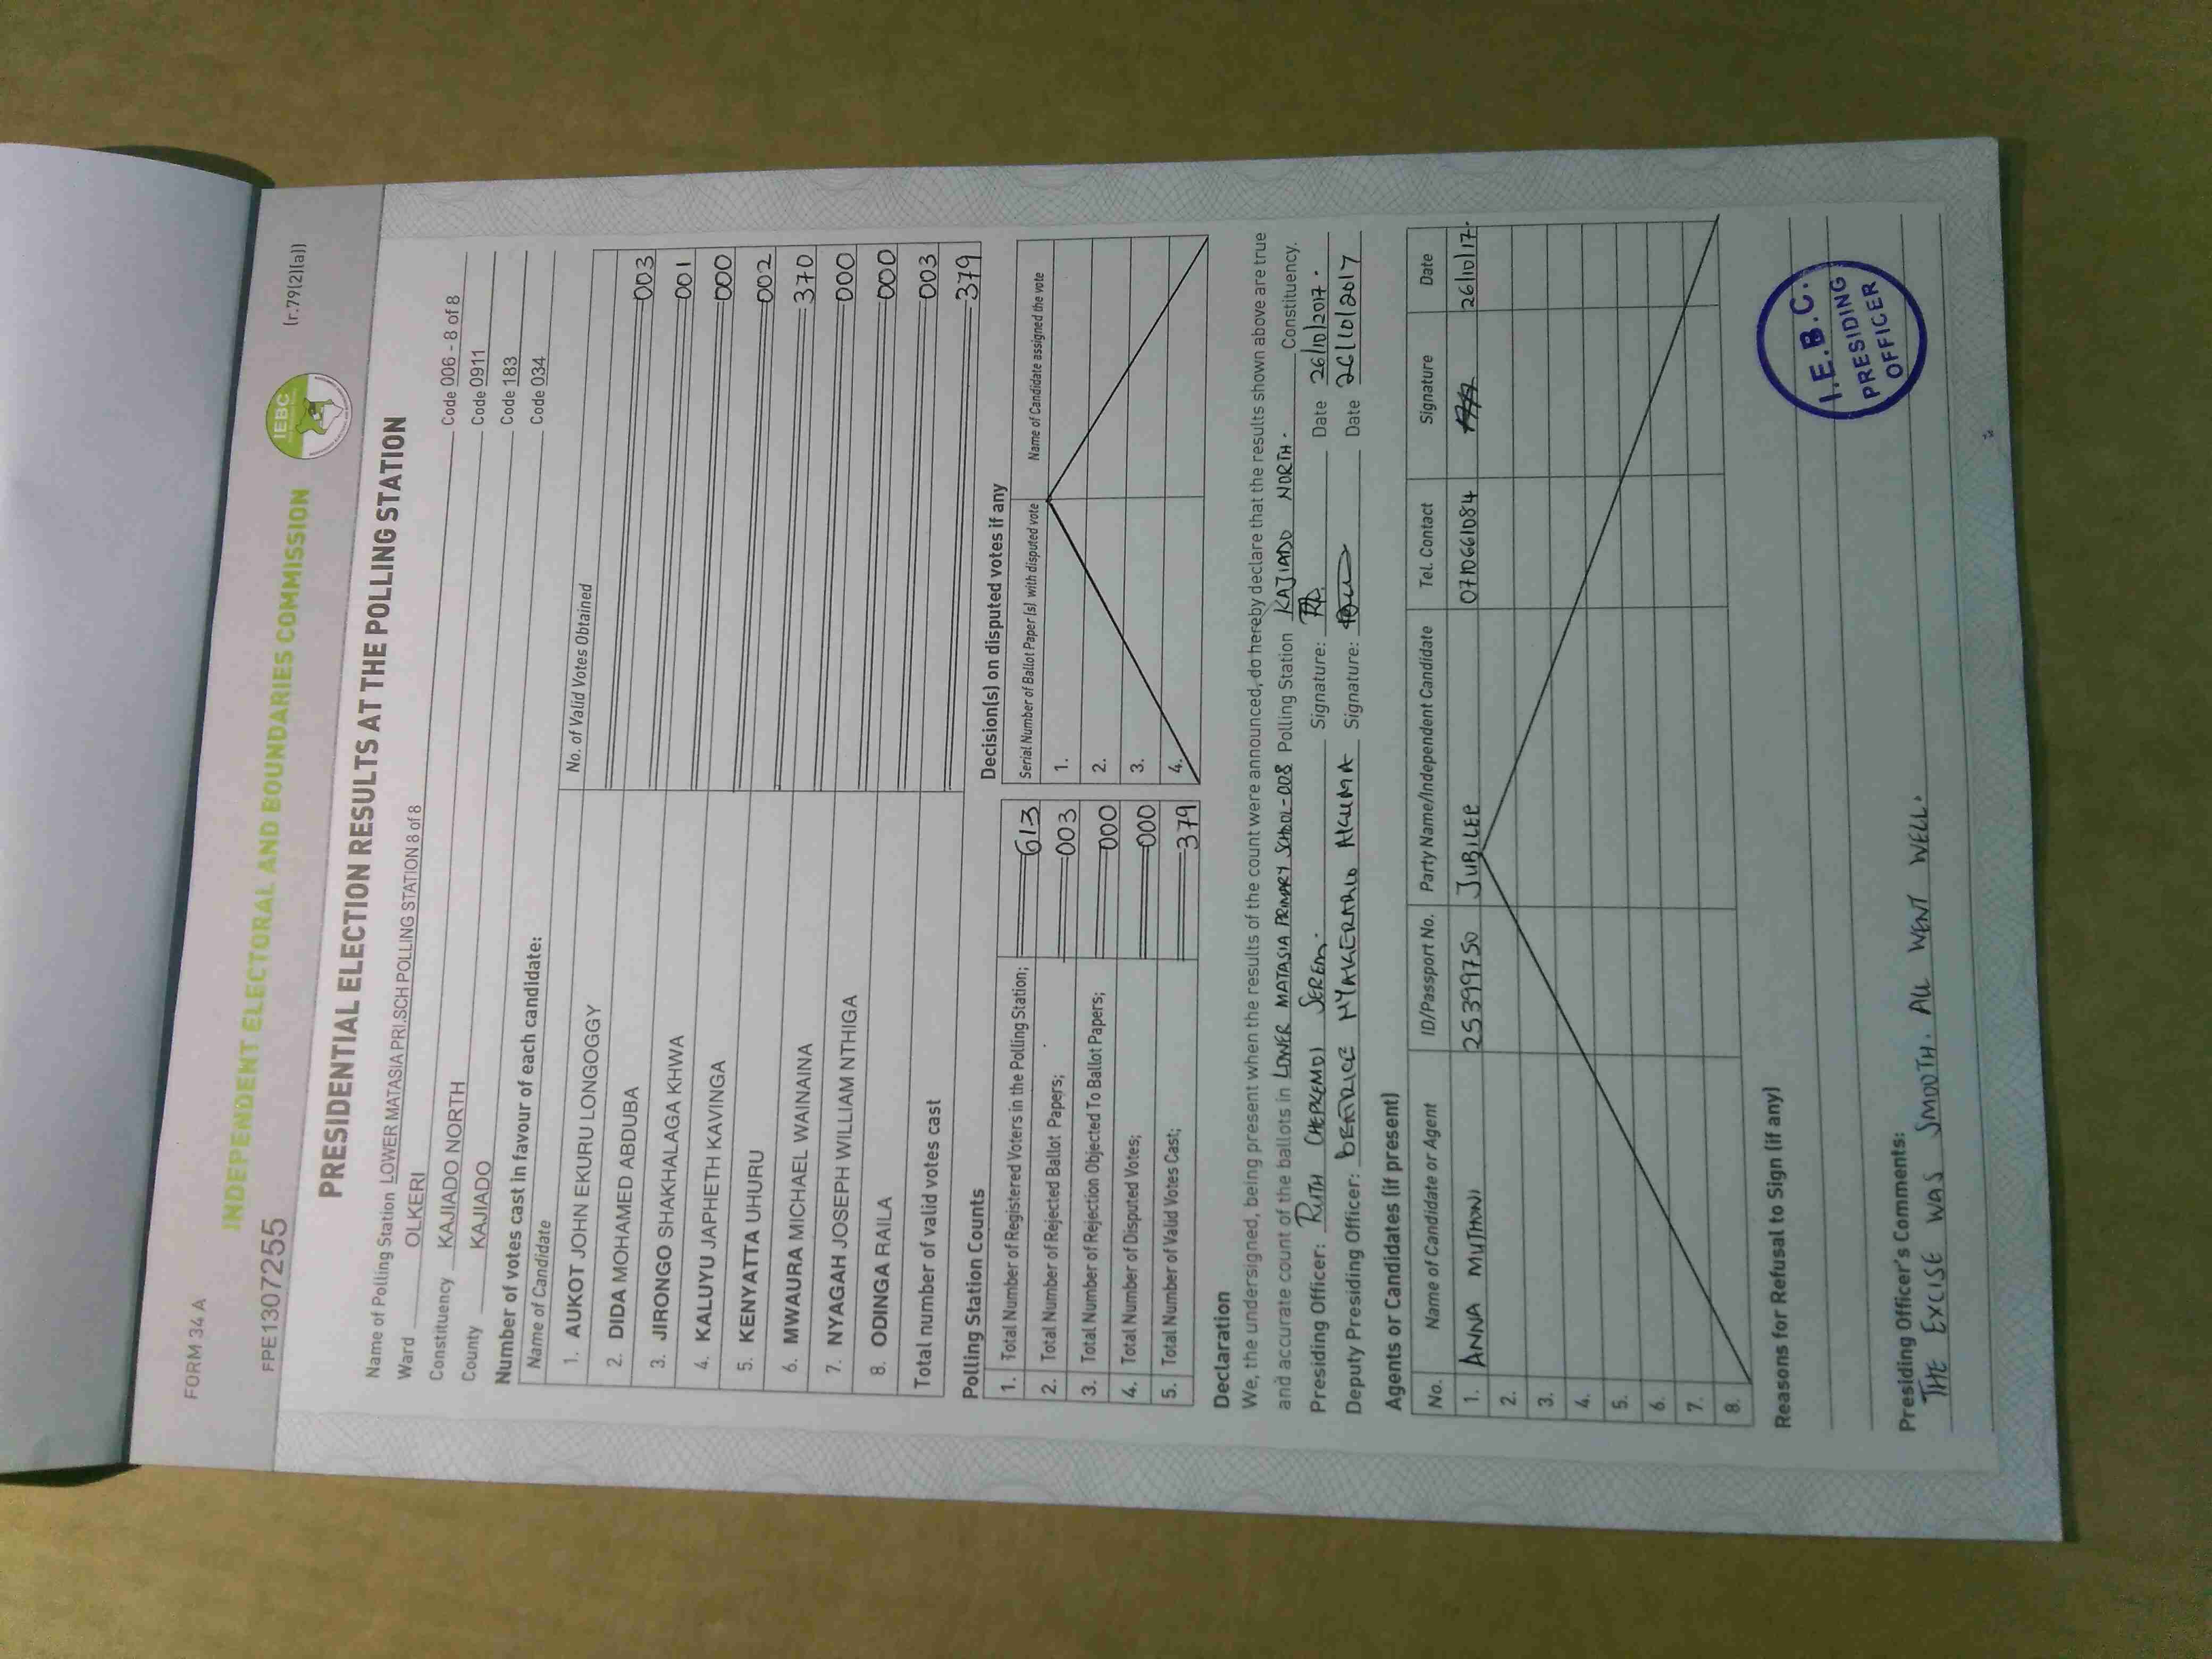 FORM 34 A
FPE1307255
INDEPENDENT ELECTORAL AND BOUNDARIES COMMISSION
IEBC
(r.79(2)(a))
PRESIDENTIAL ELECTION RESULTS AT THE POLLING STATION
Name of Polling Station LOWER MATASIA PRI.SCH POLLING STATION 8 of 8 Code 006 - 8 of 8
Ward OLKERI Code 0911
Constituency KAJIADO NORTH Code 183
County KAJIADO Code 034
Number of votes cast in favour of each candidate:
Name of Candidate No. of Valid Votes Obtained
1. AUKOT JOHN EKURU LONGOGGY 003
2. DIDA MOHAMED ABDUBA 001
3. JIRONGO SHAKHALAGA KHWA 000
4. KALUYU JAPHETH KAVINGA 002
5. KENYATTA UHURU 370
6. MWAURA MICHAEL WAINAINA 000
7. NYAGAH JOSEPH WILLIAM NTHIGA 000
8. ODINGA RAILA 003
Total number of valid votes cast 379
Polling Station Counts
1. Total Number of Registered Voters in the Polling Station; 613
2. Total Number of Rejected Ballot Papers; 003
3. Total Number of Rejection Objected To Ballot Papers; 000
4. Total Number of Disputed Votes; 000
5. Total Number of Valid Votes Cast; 379
Decision(s) on disputed votes if any
Serial Number of Ballot Paper (s) with disputed vote Name of Candidate assigned the vote
1.
2.
3.
4.
Declaration
We, the undersigned, being present when the results of the count were announced, do hereby declare that the results shown above are true
and accurate count of the ballots in LOWER MATASIA PRIMARY SCHOOL-008 Polling Station KAJIADO NORTH. Constituency.
Presiding Officer: RUTH CHEPKEMOI SEREM. Signature: Date 26/10/2017.
Deputy Presiding Officer: BEATRICE Signature: Date 26/10/2017
Agents or Candidates (if present)
No. Name of Candidate or Agent ID/Passport No. Party Name/Independent Candidate Tel. Contact Signature Date
1. ANNA MUTHONI 25399750 JUBILEE 0710661084 26/10/17.
2.
3.
4.
5.
6.
7.
8.
Reasons for Refusal to Sign (if any)
I.E.B.C.
PRESIDING
OFFICER
Presiding Officer's Comments:
THE EXCISE WAS SMOOTH. ALL WENT WELL.